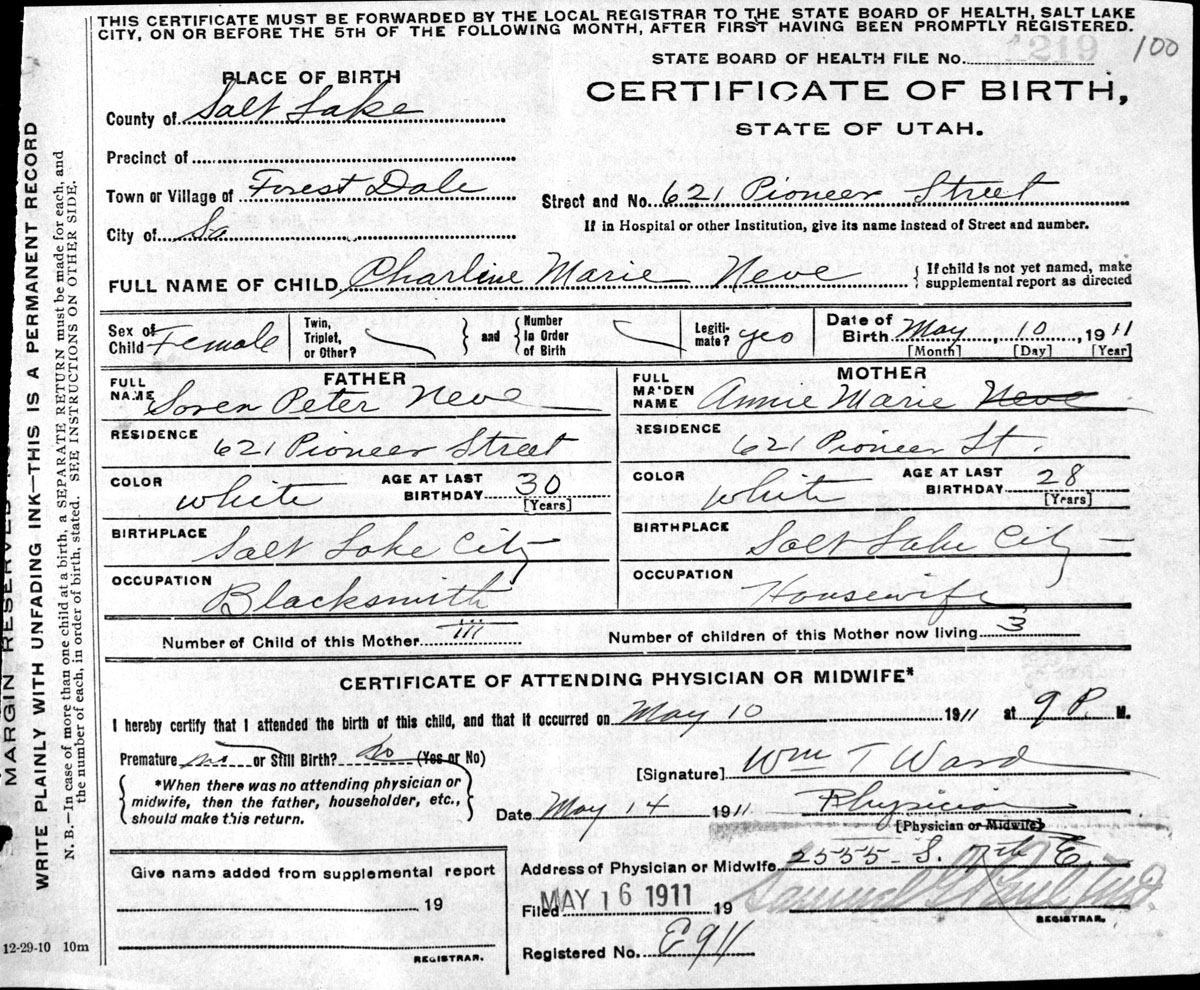 THIS CERTIFICATE MUST BE FORWARDED BY THE LOCAL REGISTRAR TO THE STATE BOARD OF HEALTH, SALT LAKE
CITY, ON OR BEFORE THE 5TH OF THE FOLLOWING MONTH, AFTER FIRST HAVING BEEN PROMPTLY REGISTERED.
219 100
STATE BOARD OF HEALTH FILE No.
PLACE OF BIRTH
CERTIFICATE OF BIRTH,
STATE OF UTAH.
County of Salt Lake
Precinct of
Town or Village of Forest Dale
Street and No. 621 Pioneer Street
City of Sa
If in Hospital or other Institution, give its name instead of Street and number.
FULL NAME OF CHILD Charline Marie Neve
If child is not yet named, make
supplemental report as directed
Sex of Child Female
Twin, Triplet, or Other? and Number In Order of Birth
Legiti-mate? yes
Date of Birth May 10 1911
[Month] [Day] [Year]
FATHER
FULL NAME Soren Peter Neve
RESIDENCE 621 Pioneer Street
COLOR white AGE AT LAST BIRTHDAY 30
[Years]
BIRTHPLACE Salt Lake City
OCCUPATION Blacksmith
MOTHER
FULL MAIDEN NAME Annie Marie Neve
RESIDENCE 621 Pioneer St.
COLOR white AGE AT LAST BIRTHDAY 28
[Years]
BIRTHPLACE Salt Lake City
OCCUPATION Housewife
Number of Child of this Mother iii Number of children of this Mother now living 3
CERTIFICATE OF ATTENDING PHYSICIAN OR MIDWIFE*
I hereby certify that I attended the birth of this child, and that it occurred on May 10 1911 at 9 P. M.
Premature no or Still Birth? no (Yes or No)
[Signature] Wm T Ward
*When there was no attending physician or
midwife, then the father, householder, etc.,
should make this return.
Date May 14 1911 Physician
[Physician or Midwife]
Give name added from supplemental report
19
REGISTRAR.
Address of Physician or Midwife 2555 S. 7th E.
Filed MAY 16 1911 19
REGISTRAR.
Registered No. E911
12-29-10 10m
MARGIN RESERVED
WRITE PLAINLY WITH UNFADING INK—THIS IS A PERMANENT RECORD
N. B.—In case of more than one child at a birth, a SEPARATE RETURN must be made for each, and
the number of each, in order of birth, stated. SEE INSTRUCTIONS ON OTHER SIDE.